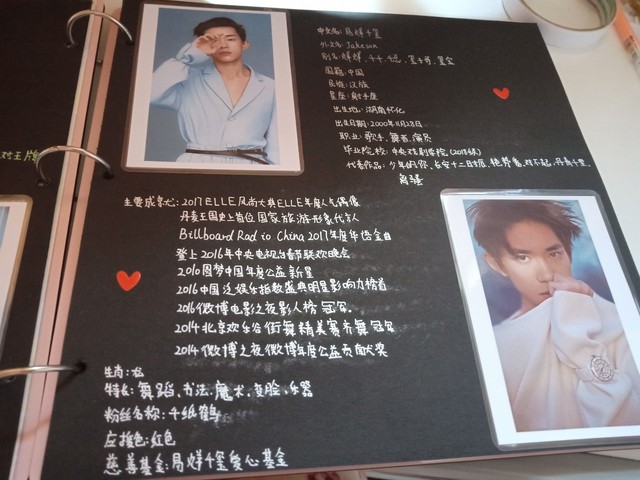 对王牌
中文名:易烊千玺
外文名: Jakeson
国籍:中国
民族:汉族
星座:射手座
出生地:湖南怀化
出生日期:2000年11月28日
职业:歌手、舞者、演员
毕业院校:中央戏剧学院(2018级)
代表作品:少年的你、长安十二时辰、艳势番、对不起、丹青千里、
离骚
主要成就:2017ELLE风尚大典ELLE年度人气偶像
丹麦王国史上首位国家旅游形象代言人
Billboard Radio China 2017年度年终金曲
登上2016年中央电视台春节联欢晚会
2016圆梦中国年度公益新星
2016中国泛娱乐指数盛典明星影响力榜首
2016微博电影之夜影人榜冠军
2014北京欢乐谷街舞精英赛齐舞冠军
2014微博之夜微博年度公益贡献大奖
生肖:龙
特长:舞蹈、书法、魔术、变脸、乐器
粉丝名称:千纸鹤
应援色:红色
慈善基金:易烊千玺爱心基金